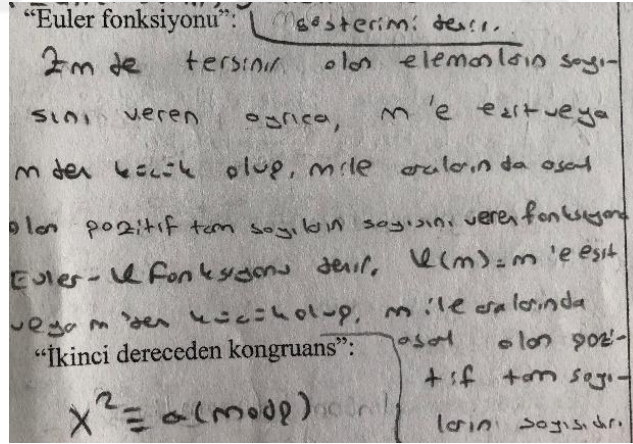 “Euler fonksiyonu”: gösterimi denir.
Zm de tersinir olan elemanların sayı-
sını veren ayrıca, m 'e eşit veya
m den küçük olup, m ile aralarında asal
olan pozitif tam sayıların sayısını veren fonksiyona
Euler-φ fonksiyonu denir. φ(m)=m 'e eşit
veya m 'den küçük olup, m ile aralarında
asal olan pozi-
tif tam sayı-
ların sayısıdır.
“İkinci dereceden kongruans”:
x² ≡ a (mod p)